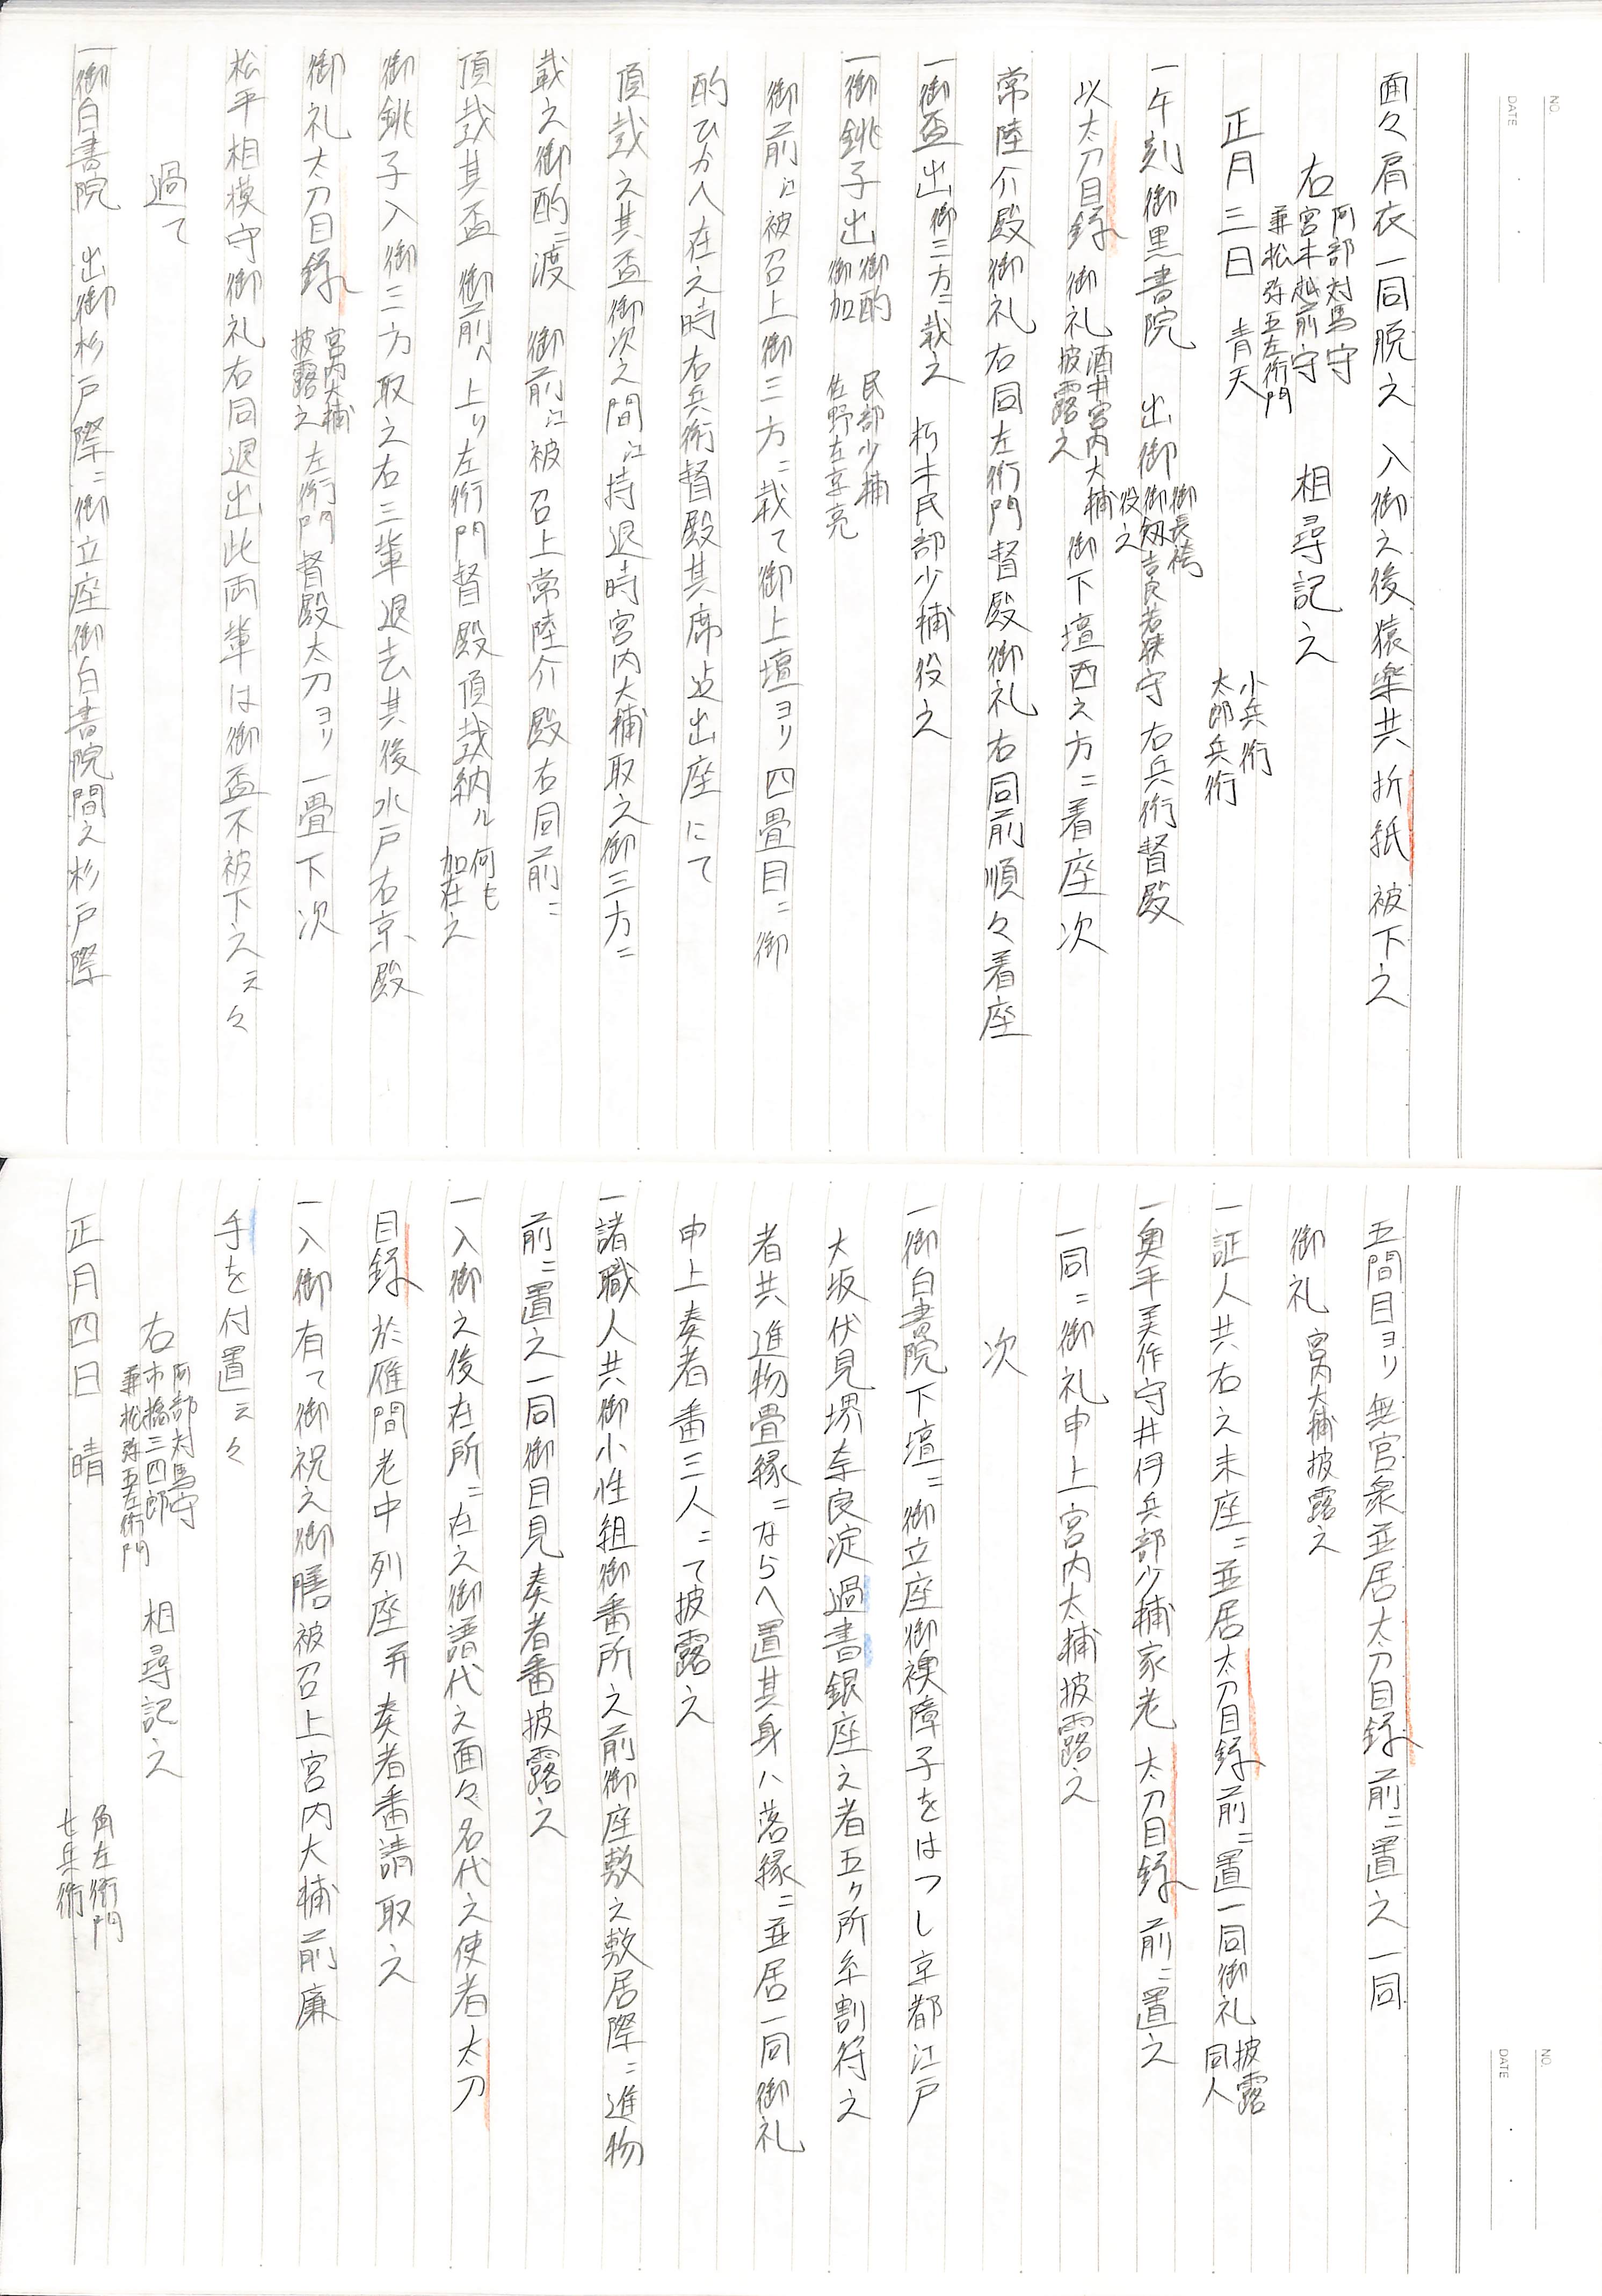 NO.
DATE
面々肩衣一同脱之　入御之後猿楽共折紙被下之
右　阿部対馬守
宮木越前守
兼松弥五左衛門　相尋記之
正月三日　青天　小兵衛
太郎兵衛
一午刻御黒書院　出御　御長袴
御劔吉良若狭守
役之　右兵衛督殿
以太刀目録　御礼　酒井宮内大輔
披露之　御下壇西之方ニ着座次
常陸介殿御礼右同左衛門督殿御礼右同前順々着座
一御盃出御三方ニ載之　朽木民部少輔役之
一御銚子出　御酌　民部少輔
御加　佐野左京亮
御前江被召上御三方ニ載て御上壇ヨリ四畳目ニ御
酌ひかへ在之時右兵衛督殿其席迄出座にて
頂戴之其盃御次之間江持退時宮内大輔取之御三方ニ
載之御酌ニ渡　御前江被召上常陸介殿右同前ニ
頂戴其盃　御前へ上り左衛門督殿頂戴納ル　何も
加在之
御銚子入御三方取之右三輩退去其後水戸右京殿
御礼太刀目録　宮内大輔
披露之　左衛門督殿太刀ヨリ一畳下次
松平相模守御礼右同退出此両輩は御盃不被下之云々
過て
一御白書院　出御杉戸際ニ御立座御白書院間之杉戸際
NO.
DATE
五間目ヨリ無官衆並居太刀目録前ニ置之一同
御礼　宮内大輔披露之
一証人共右之末座ニ並居太刀目録前ニ置一同御礼　披露
同人
一奥平美作守井伊兵部少輔家老　太刀目録　前ニ置之
一同ニ御礼申上宮内大輔披露之
次
一御白書院下壇ニ御立座御襖障子をはつし京都江戸
大坂伏見堺奈良淀過書銀座之者五ケ所糸割符之
者共進物畳縁ニならへ置其身ハ落縁ニ並居一同御礼
申上奏者番三人ニて披露之
一諸職人共御小性組御番所之前御座敷之敷居際ニ進物
前ニ置之一同御目見奏者番披露之
一入御之後在所ニ在之御譜代之面々名代之使者太刀
目録於雁間老中列座并奏者番請取之
一入御有て御祝之御膳被召上宮内大輔前廉
手を付置云々
右　阿部対馬守
市橋三四郎
兼松弥五左衛門　相尋記之
正月四日　晴　角左衛門
七兵衛